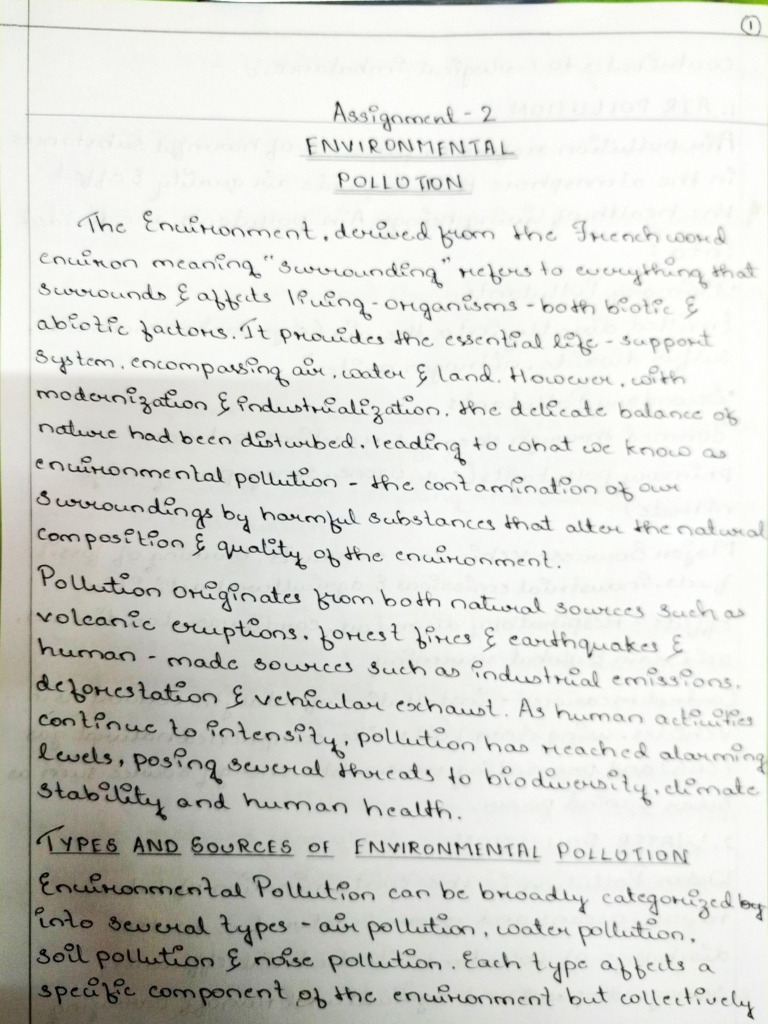 1
Assignment - 2
ENVIRONMENTAL
POLLUTION
The Environment, derived from the French word
environ meaning "surrounding" refers to everything that
surrounds & affects living - organisms - both biotic &
abiotic factors. It provides the essential life - support
system, encompassing air, water & land. However, with
modernization & industrialization, the delicate balance of
nature had been disturbed, leading to what we know as
environmental pollution - the contamination of our
surroundings by harmful substances that alter the natural
composition & quality of the environment.
Pollution originates from both natural sources such as
volcanic eruptions, forest fires & earthquakes &
human - made sources such as industrial emissions,
deforestation & vehicular exhaust. As human activities
continue to intensity, pollution has reached alarming
levels, posing several threats to biodiversity, climate
stability and human health.
TYPES AND SOURCES OF ENVIRONMENTAL POLLUTION
Environmental Pollution can be broadly categorized by
into several types - air pollution, water pollution,
soil pollution & noise pollution. Each type affects a
specific component of the environment but collectively